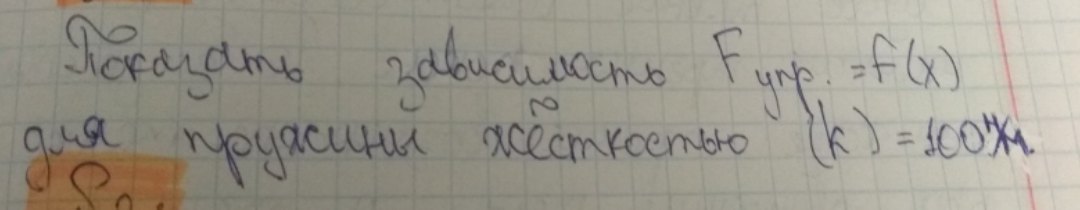 Показать зависимость Fупр. = f(x)
для пружины жёсткостью (k) = 100 Н/м.